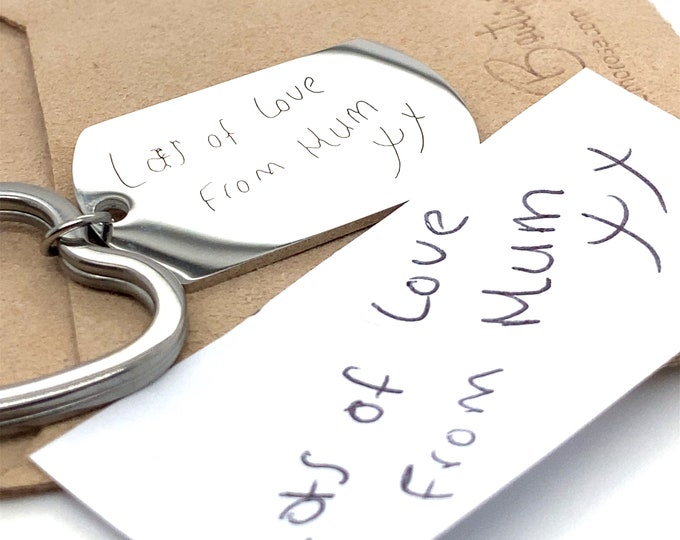 Lots of Love
From Mum
xx
Lots of Love
From Mum
xx